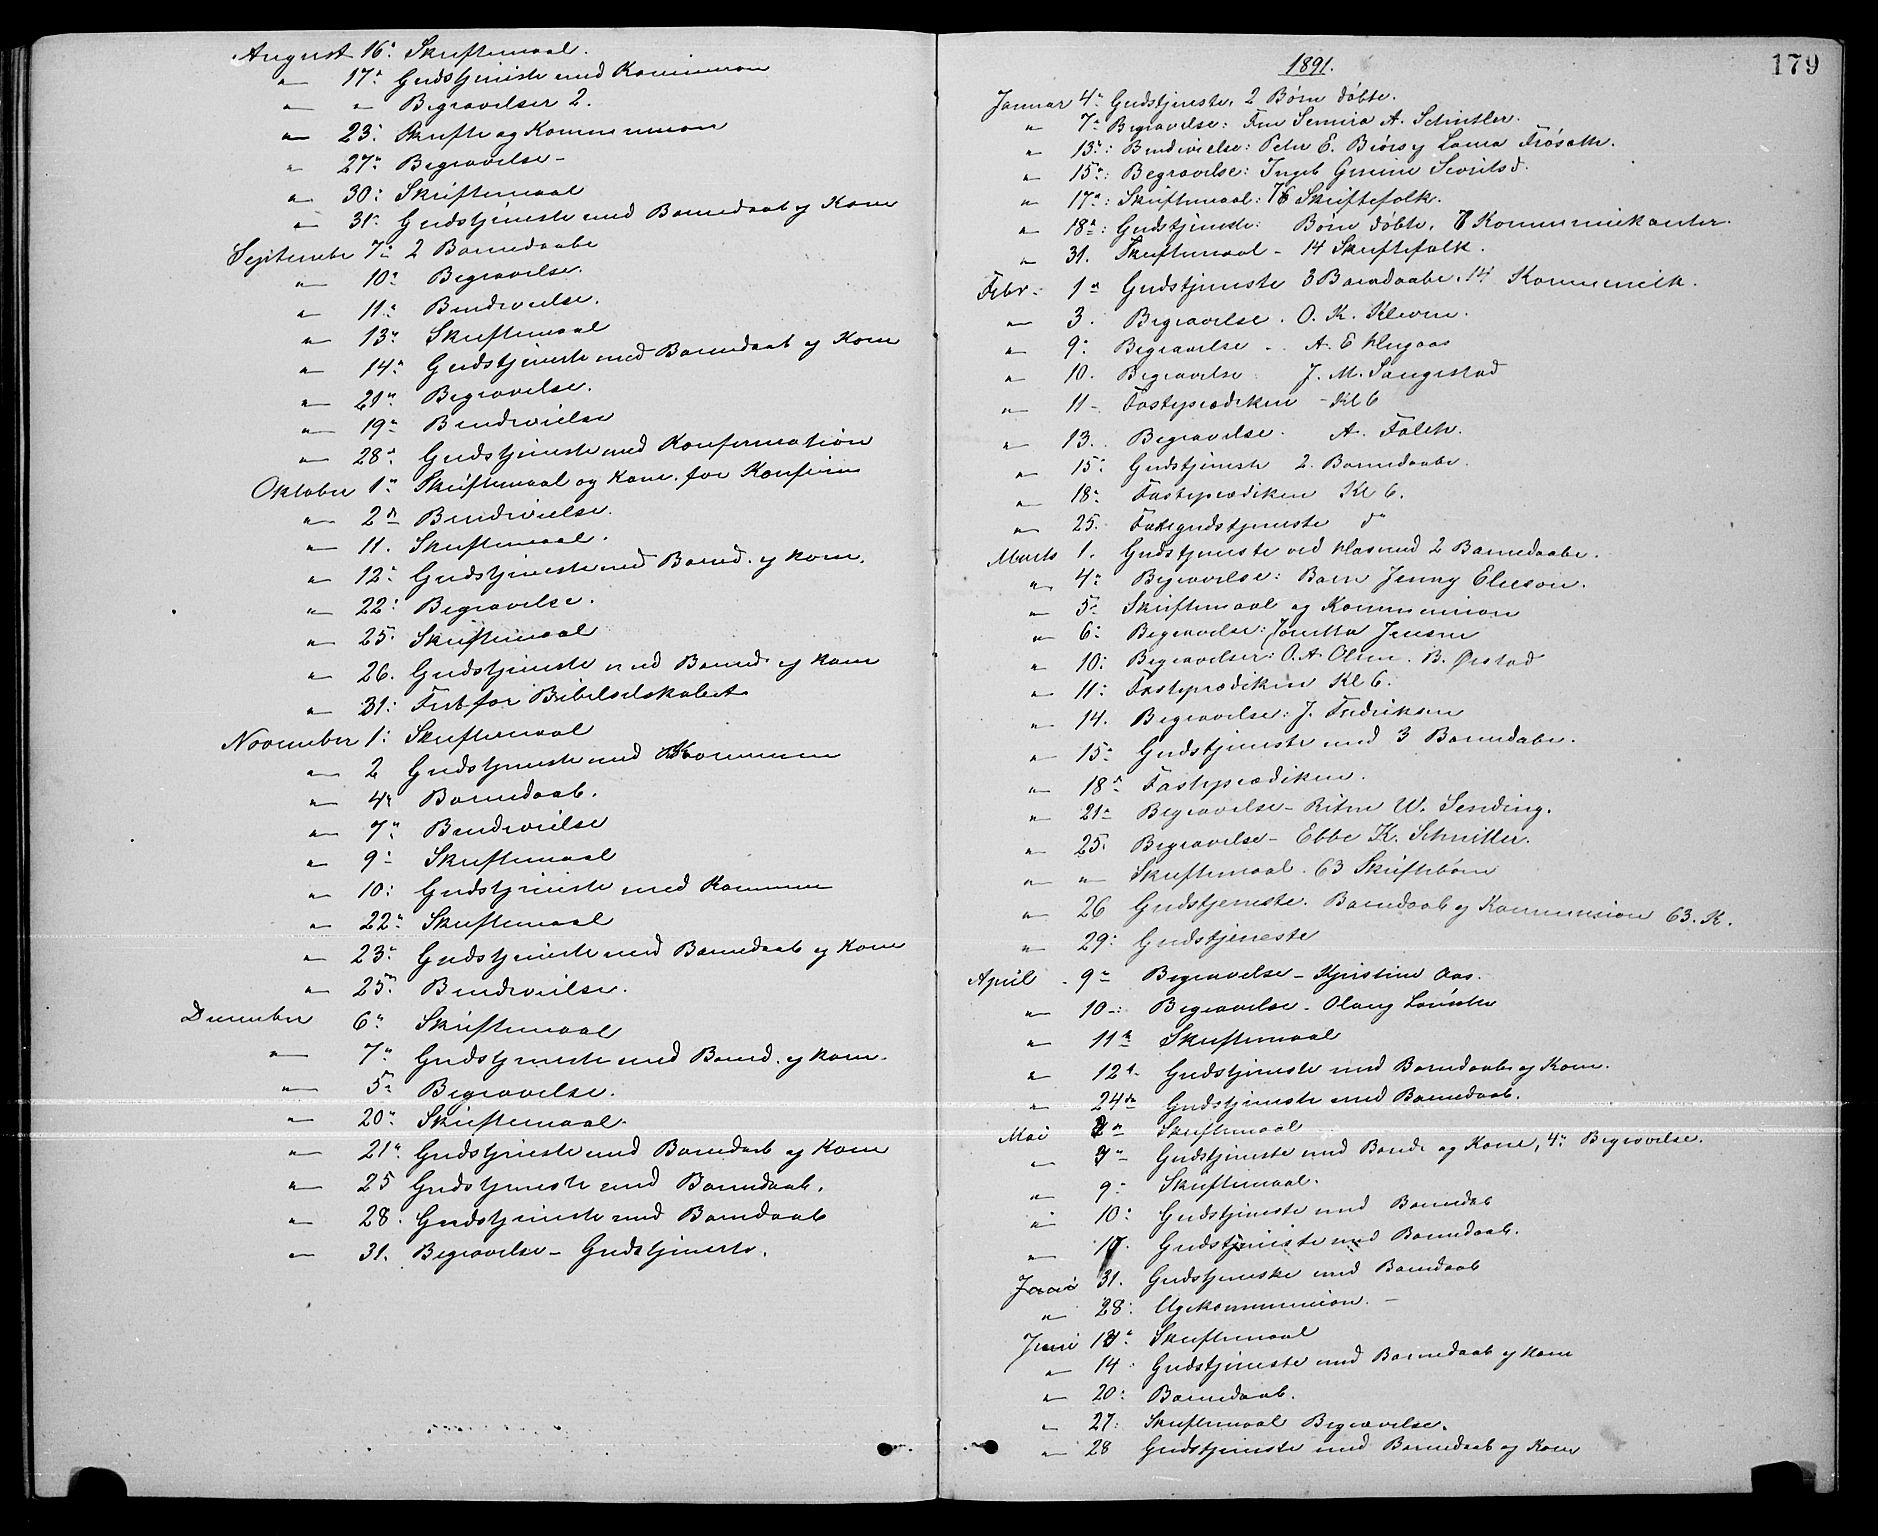 August 16: Skriftemaal.
" 17: Gudstjeneste med Kommunion
" " Begravelser 2.
" 23: Skrifte og Kommunion
" 27: Begravelse -
" 30: Skriftemaal
" 31: Gudstjeneste med Barnedaab og Kom
September 7: 2 Barnedaabe
" 10: Begravelse.
" 11: Brudevielse.
" 13: Skriftemaal
" 14: Gudstjeneste med Barnedaab og Kom
" 21: Begravelse.
" 19: Brudevielse
" 28: Gudstjeneste med Konfirmation
Oktober 1: Skriftemaal og Kom. for Konfirm
" 2: Brudevielse.
" 11. Skriftemaal.
" 12: Gudstjeneste med Barned. og Kom.
" 22: Begravelse.
" 25. Skriftemaal
" 26. Gudstjeneste med Barned. og Kom
" 31: Fest for Bibelselskabet
November 1: Skriftemaal
" 2 Gudstjeneste med Kommunion
" 4: Barnedaab.
" 7: Brudevielse
" 9: Skriftemaal
" 10: Gudstjeneste med Kommunion
" 22: Skriftemaal
" 23: Gudstjeneste med Barnedaab og Kom
" 25: Brudevielse.
December 6: Skriftemaal
" 7: Gudstjeneste med Barned. og Kom.
" 5: Begravelse.
" 20: Skriftemaal.
" 21: Gudstjeneste med Barnedaab og Kom
" 25 Gudstjeneste med Barnedaab.
" 28. Gudstjeneste med Barnedaab
" 31. Begravelse - Gudstjeneste.
179
1891.
Januar 4: Gudstjeneste. 2 Børn døbte.
" 7: Begravelse: Fru A. Schnitler.
" 13: Brudevielse: Peter E. og Laura Frøseth.
" 15: Begravelse: Ingeb Sivertsd.
" 17: Skriftemaal: 76 Skriftefolk.
" 18: Gudstjeneste: Børn døbte, Kommunikanter.
" 31. Skriftemaal - 14 Skriftefolk.
Febr. 1: Gudstjeneste 3 Barnedaabe. 14 Kommunik.
" 3. Begravelse. O. K. Kleven.
" 9: Begravelse - A. E Hugaas
" 10. Begravelse J. M. Sangestad
" 11 - Fasteprædiken - Kl 6
" 13. Begravelse. A. Falch.
" 15: Gudstjeneste 2. Barnedaabe.
" 18: Fasteprædiken Kl 6.
" 25. Fastegudstjeneste do
Marts 1. Gudstjeneste ved 2 Barnedaabe.
" 4: Begravelse: Barn Jenny Elieson.
" 5: Skriftemaal og Kommunion
" 6: Begravelse: Jonetta Jensen
" 10: Begravelser: O. A. Olsen. B. Ørstad
" 11: Fasteprædiken Kl 6.
" 14. Begravelse: J. Fredriksen
" 15: Gudstjeneste med 3 Barnedabe.
" 18: Fasteprædiken.
" 21: Begravelse - W. Sending.
" 25: Begravelse - Ebbe K. Schnitler.
" " Skriftemaal. 63 Skriftebørn
" 26 Gudstjeneste. Barnedaab og Kommunion 63. K.
" 29: Gudstjeneste
April 9: Begravelse - Kjristine Aas.
" 10: Begravelse - Olaug
" 11: Skriftemaal
" 12: Gudstjeneste med Barnedaab og Kom.
" 24de Gudstjeneste med Barnedaab.
Mai 2: Skriftemaal
" 3: Gudstjeneste med Barnd. og Kom, 4: Begravelse.
" 9: Skriftemaal.
" 10: Gudstjeneste med Barnedab
" 17. Gudstjeneste med Barnedaab.
31. Gudstjeneste med Barnedaab
" 28: Ugekommunion. -
Juni 13: Skriftemaal
" 14: Gudstjeneste med Barnedaab og Kom
" 20: Barnedaab.
" 27: Skriftemaal Begravelse.
" 28 Gudstjeneste med Barnedaab og Kom